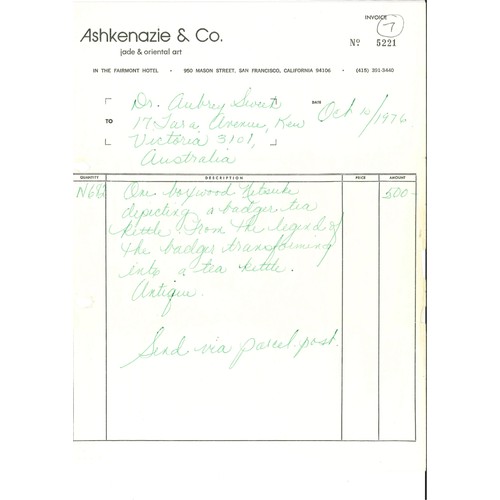 INVOICE
7
Ashkenazie & Co.
jade & oriental art
Nº 5221
IN THE FAIRMONT HOTEL • 950 MASON STREET, SAN FRANCISCO, CALIFORNIA 94106 • (415) 391-3440
TO
Dr. Aubrey Sweet
17 Tara Avenue, Kew
Victoria 3101,
Australia
DATE Oct 4/1976
QUANTITY DESCRIPTION PRICE AMOUNT
N662 One boxwood Netsuke 500 -
depicting a badger tea
kettle. From the legend of
the badger transforming
into a tea kettle.
Antique.
Send via parcel post.